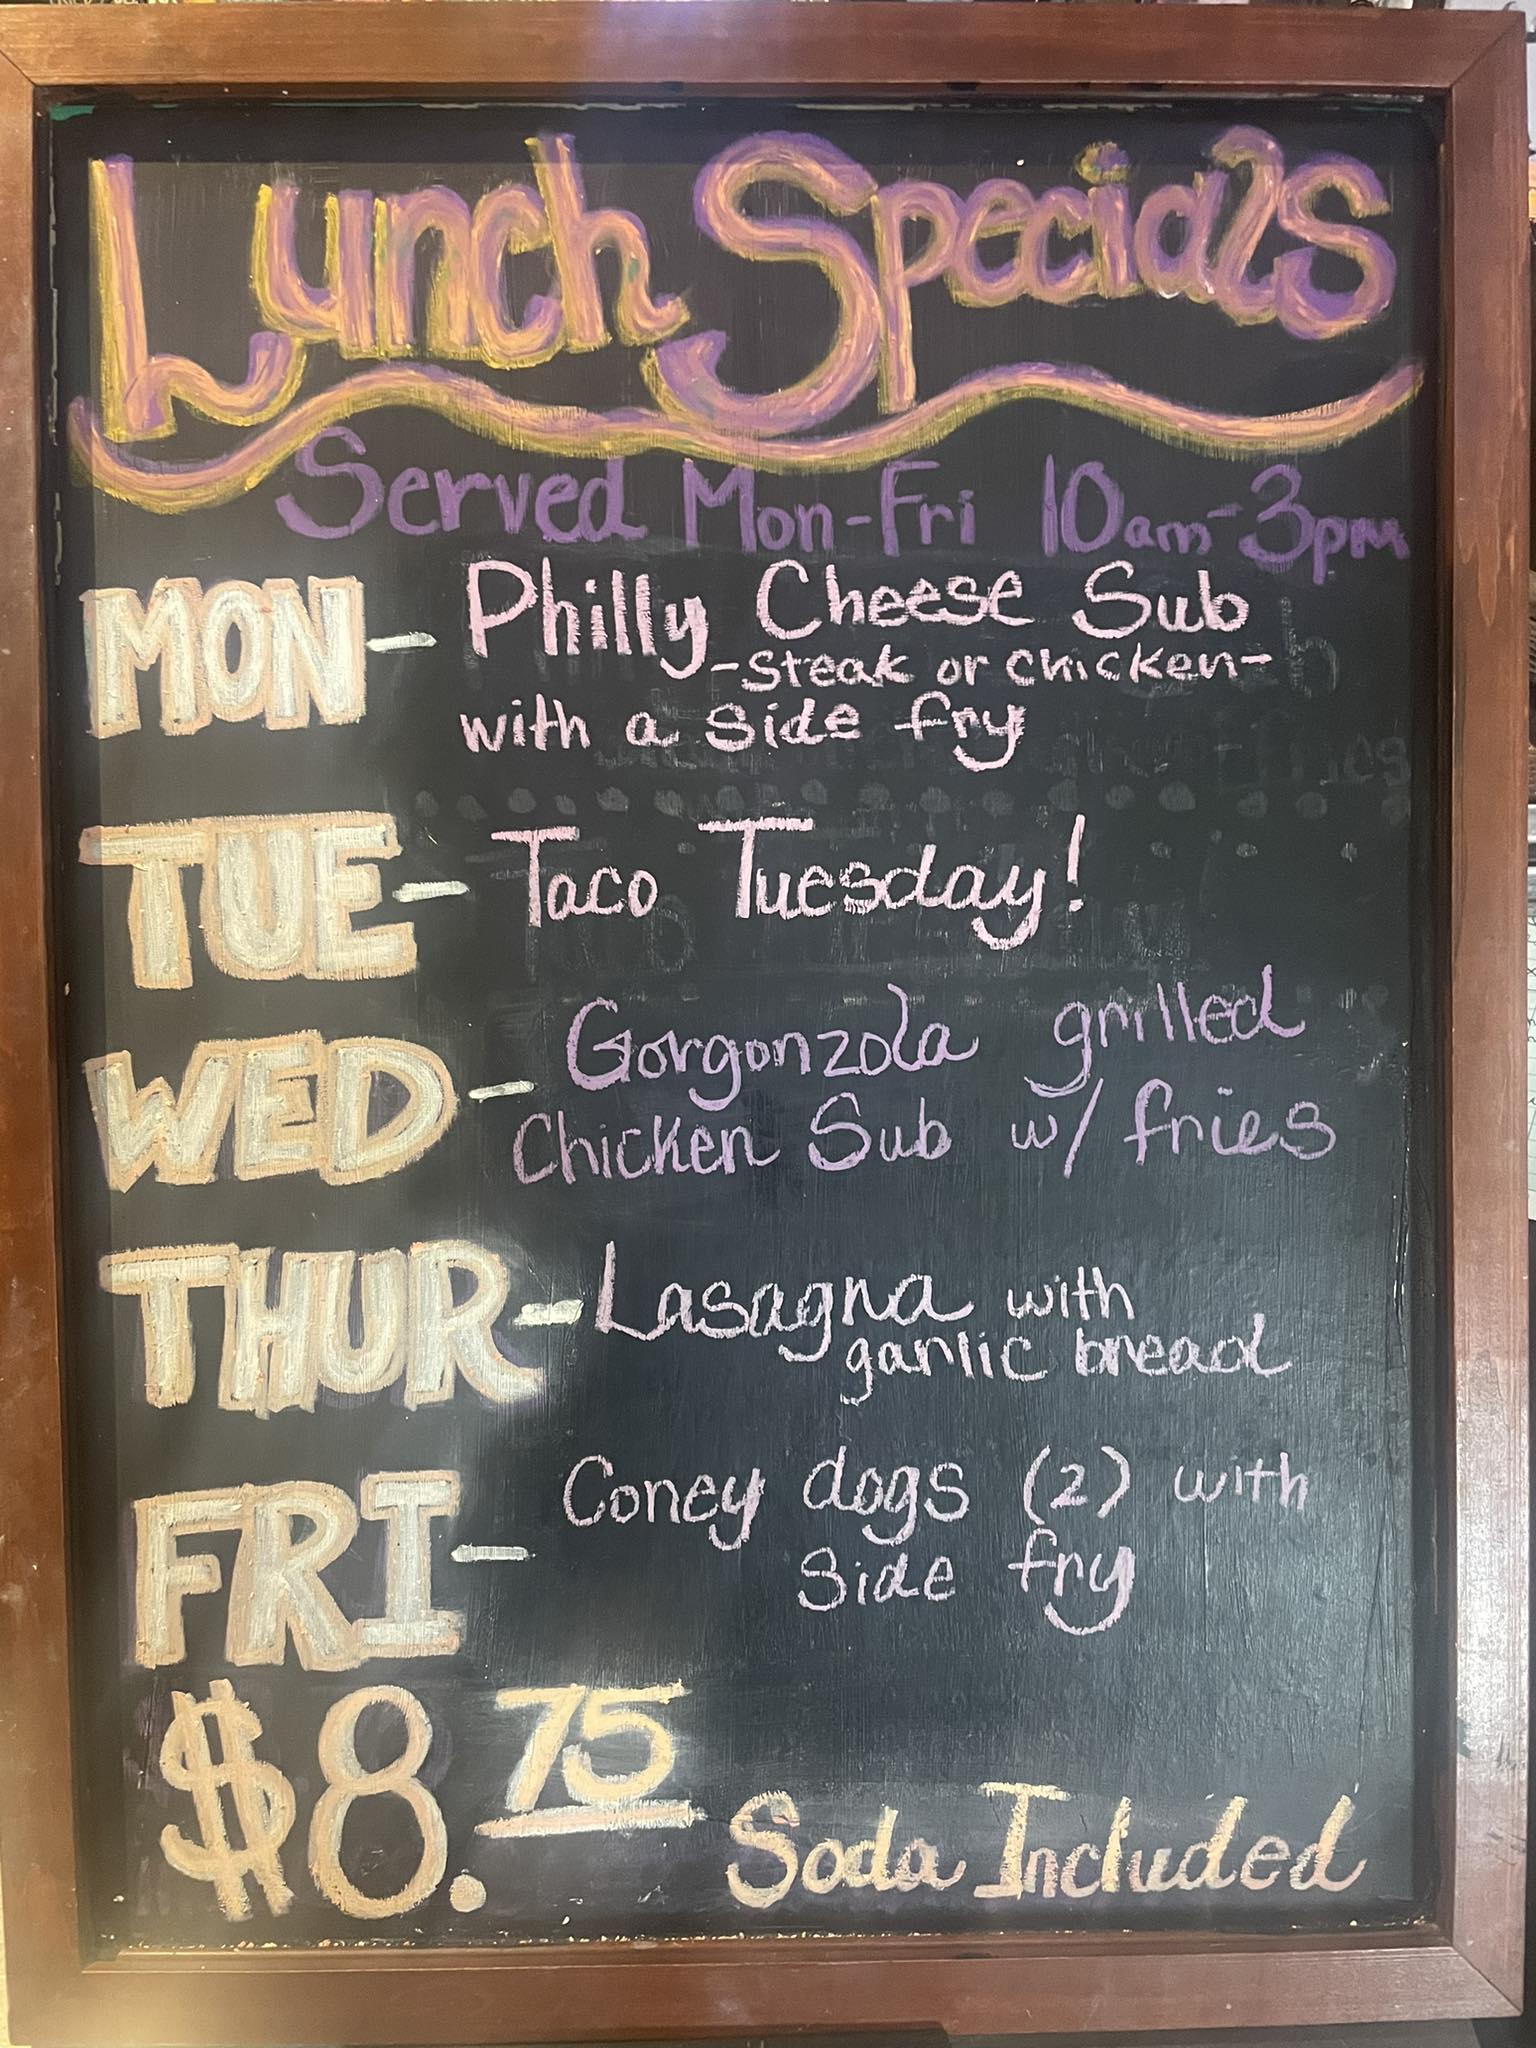 Lunch Specials
Served Mon-Fri 10am-3pm
MON- Philly Cheese Sub
-steak or chicken-
with a side fry
TUE- Taco Tuesday!
WED- Gorgonzola grilled
Chicken Sub w/ fries
THUR- Lasagna with
garlic bread
FRI- Coney dogs (2) with
side fry
$8.75 Soda Included